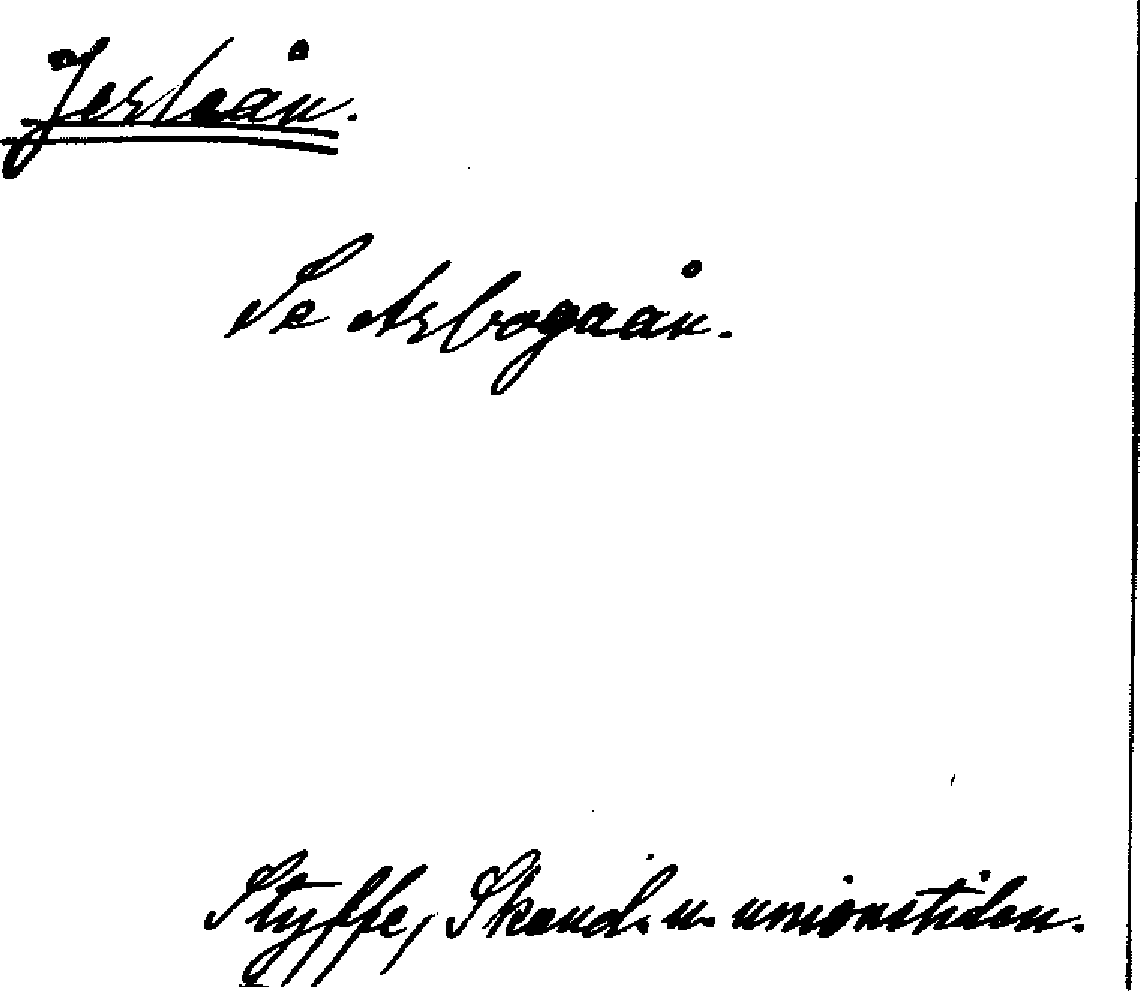 Jerleån.
Se Arbogaån.
Styffe, Skand. u. unionstiden.